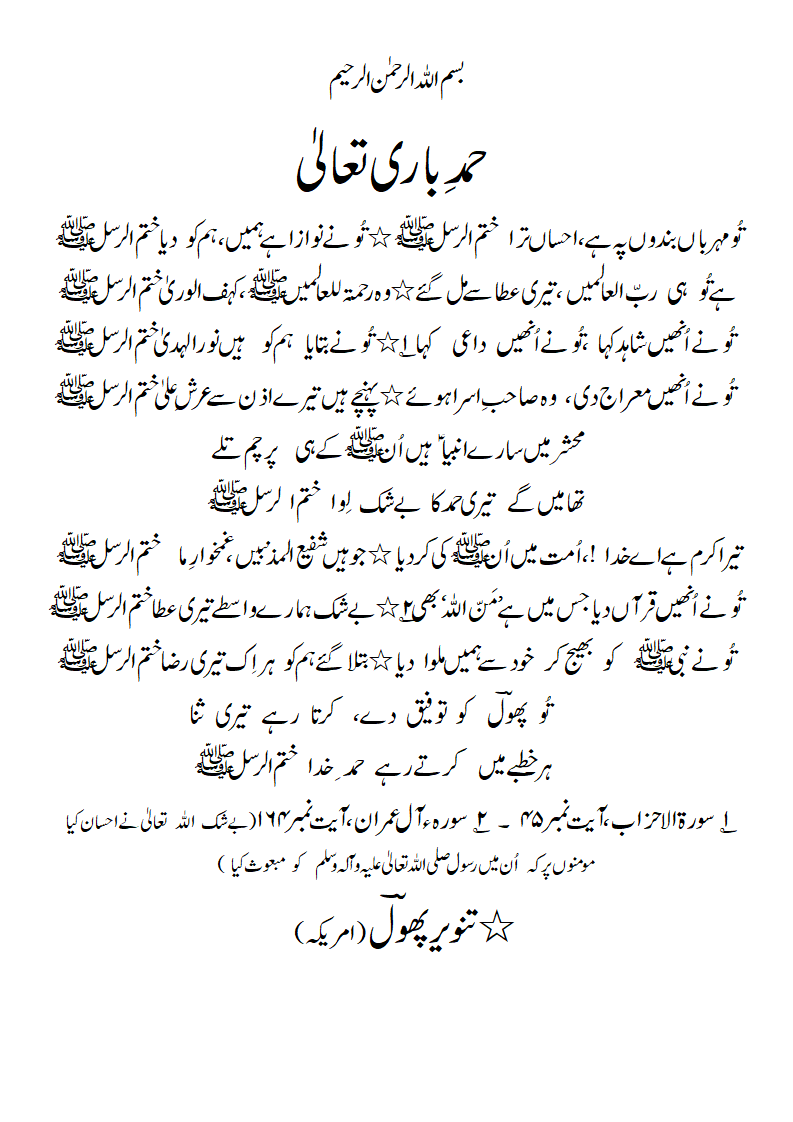 بسم اللہ الرحمٰن الرحیم
حمدِ باری تعالیٰ
تُو مہرباں بندوں پہ ہے، احساں ترا ختم الرسل ﷺ ☆ تُو نے نوازا ہے ہمیں، ہم کو دیا ختم الرسل ﷺ
ہے تُو ہی ربّ العالمیں ، تیری عطا سے مل گئے ☆ وہ رحمۃ للعالمیں ﷺ ، کہف الوریٰ ختم الرسل ﷺ
تُو نے اُنھیں شاہد کہا ، تُو نے اُنھیں داعی کہا ؂۱ ☆ تُو نے بتایا ہم کو ہیں نورالہدیٰ ختم الرسل ﷺ
تُو نے اُنھیں معراج دی، وہ صاحبِ اسرا ہوئے ☆ پہنچے ہیں تیرے اذن سے عرشِ علیٰ ختم الرسل ﷺ
محشر میں سارے انبیاؑ ہیں اُن ﷺ کے ہی پرچم تلے
تھامیں گے تیری حمد کا بے شک لِوا ختم الرسل ﷺ
تیرا کرم ہے اے خدا !، اُمت میں اُن ﷺ کی کر دیا ☆ جو ہیں شفیع المذنبیں ، غمخوارِ ما ختم الرسل ﷺ
تُو نے اُنھیں قرآں دیا جس میں ہے ’مَنّ اللہ‘ بھی ؂۲ ☆ بے شک ہمارے واسطے تیری عطا ختم الرسل ﷺ
تُو نے نبی ﷺ کو بھیج کر خود سے ہمیں ملوا دیا ☆ بتلا گئے ہم کو ہر اِک تیری رضا ختم الرسل ﷺ
تُو پھولؔ کو توفیق دے، کرتا رہے تیری ثنا
ہر خطبے میں کرتے رہے حمدِ خدا ختم الرسل ﷺ
؂۱ سورۃ الاحزاب ، آیت نمبر ۴۵ ۔ ؂۲ سورہء آلِ عمران ، آیت نمبر ۱۶۴ (بے شک اللہ تعالیٰ نے احسان کیا
مومنوں پر کہ اُن میں رسول صلی اللہ تعالیٰ علیہ وآلہ وسلم کو مبعوث کیا )
☆ تنویر پھولؔ (امریکہ)